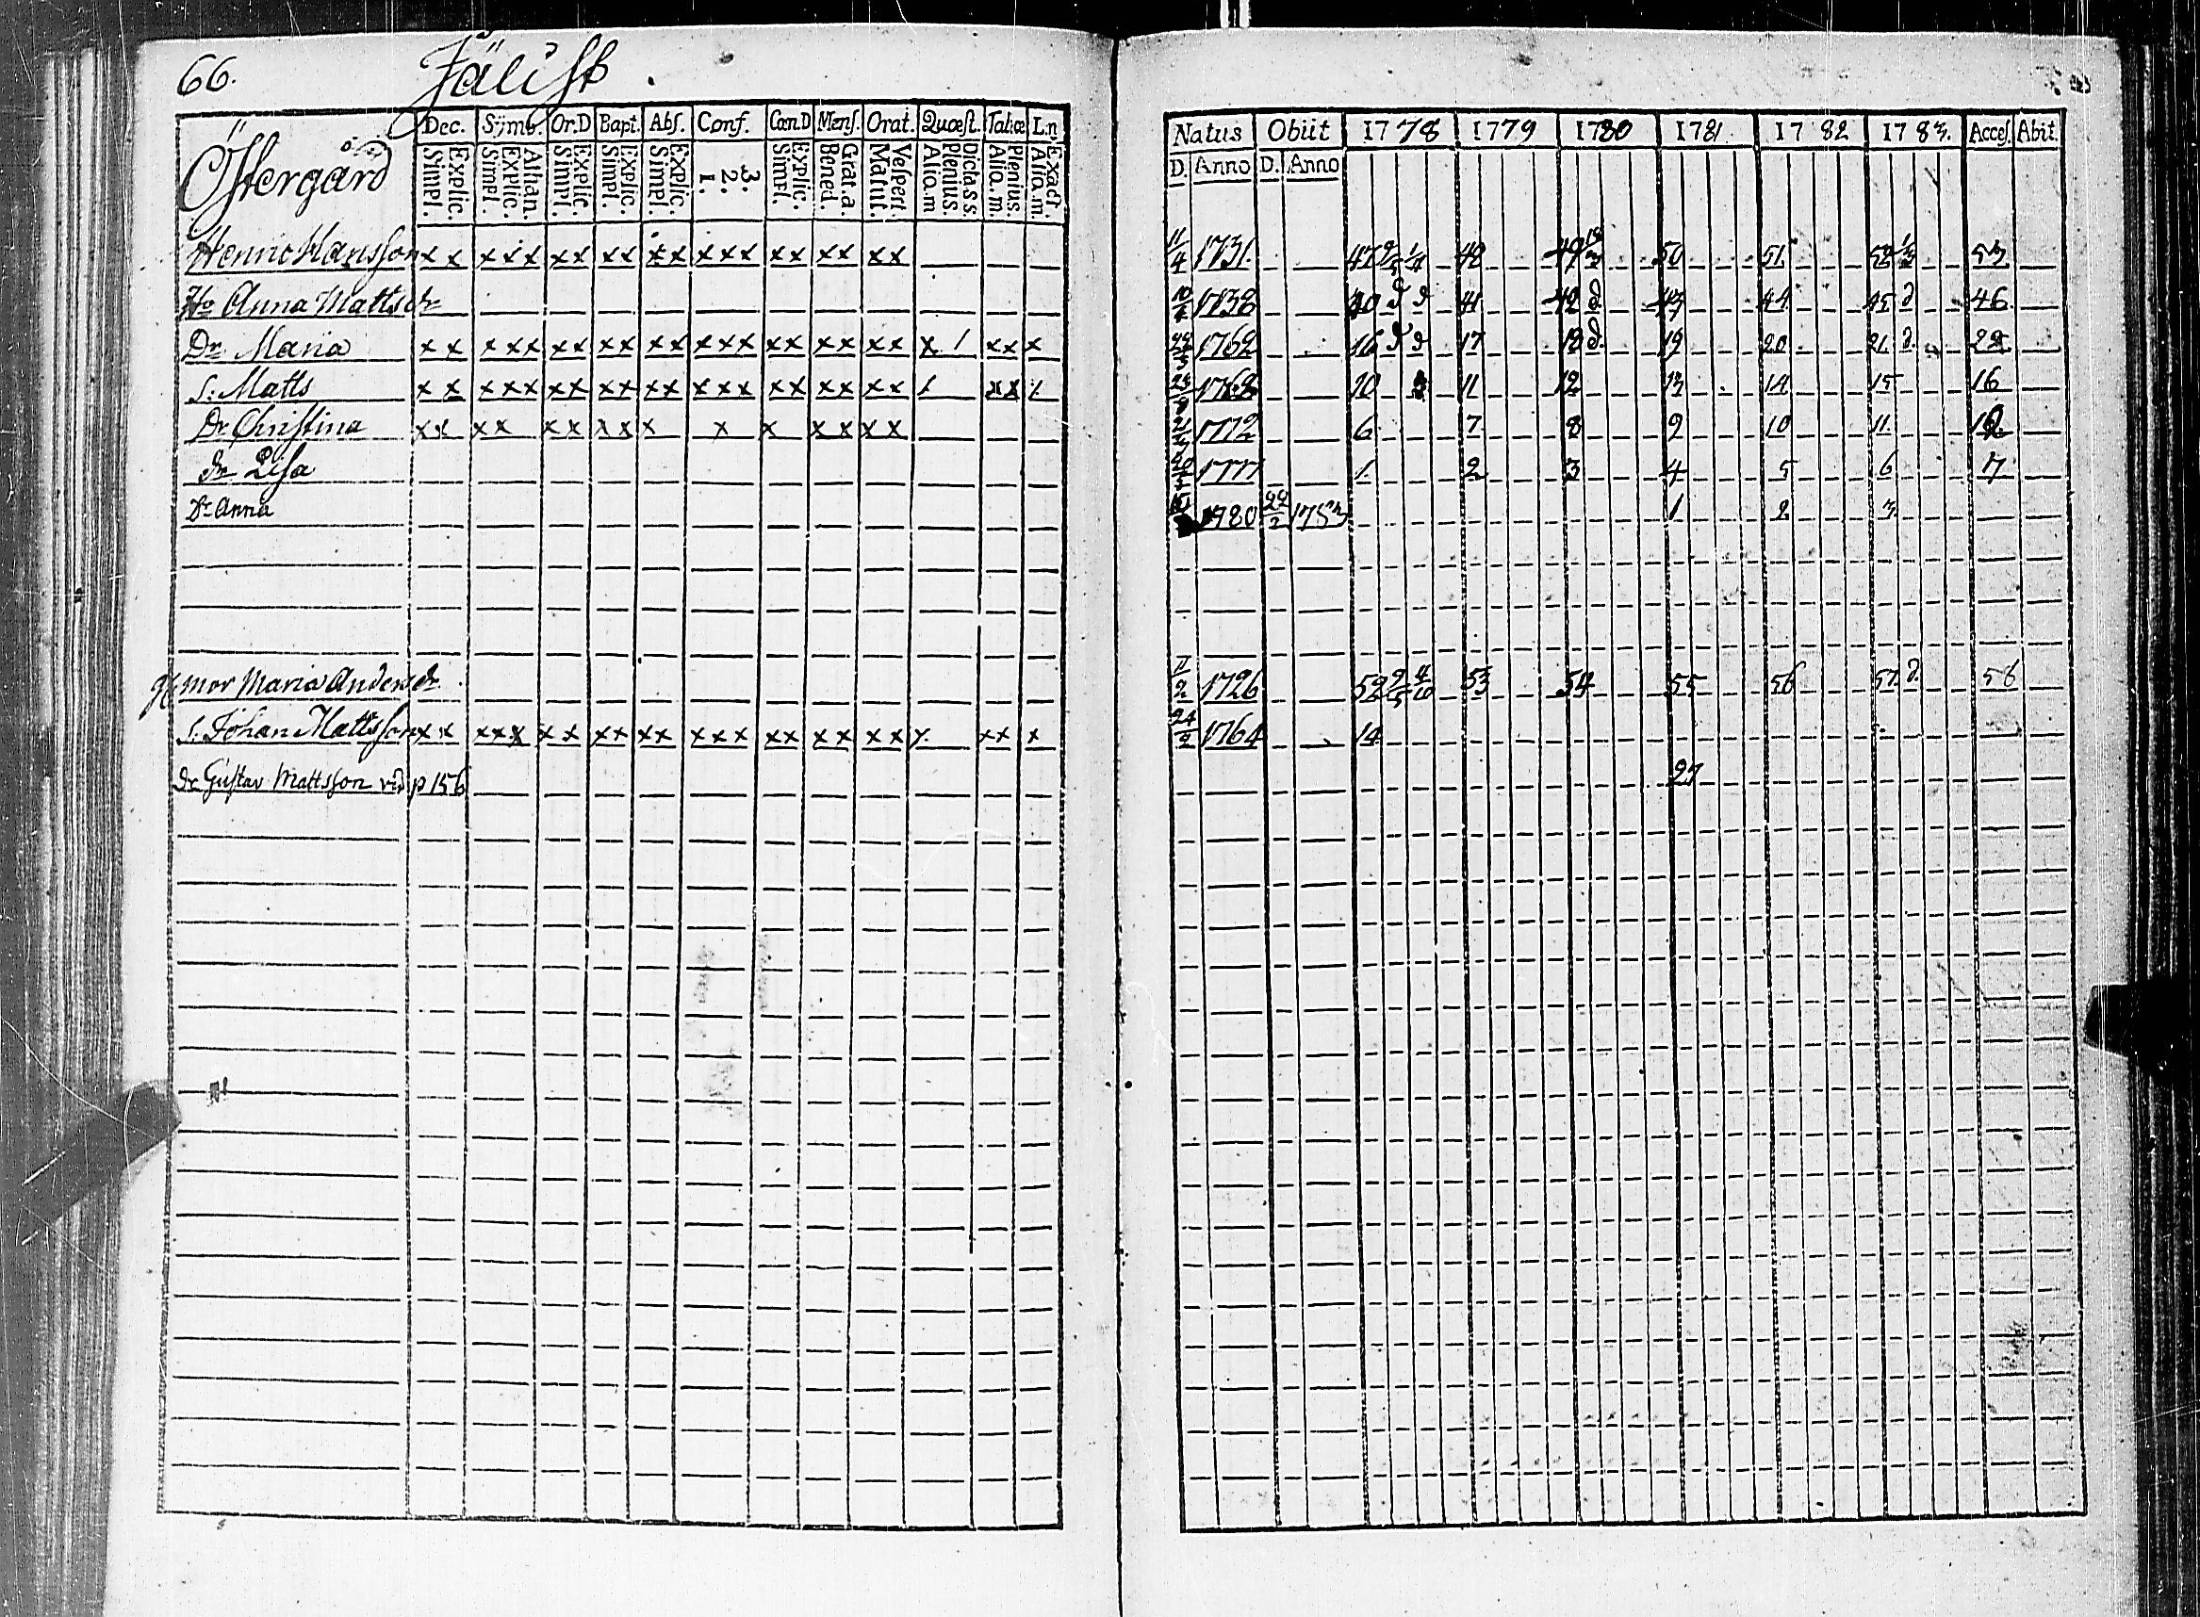 66. Jälist
Östergård
Dec. Sÿmb. Or.D Bapt. Abs. Conf. Cœn.D Mens. Orat. Quæst. Tabœ L.n
Explic. Simpl. Athan. Explic. Simpl. Explic. Simpl. Explic. Simpl. Explic. Simpl. 3. 2. 1. Explic. Simpl. Grat.a. Bened. Vespert. Matut. Dicta.s s. Plenius. Alia.m Plenius. Alia.m. Exact. Alia.m.
Natus Obiit 1778 1779 1780 1781 1782 1783. Acces. Abit.
D. Anno D. Anno
Henric Hansson x x x x x x x x x x x x x x x x x x 11/4 1731. 47 48 49 50 51 52 53
Ho Anna Mattsdr 1738 40 d d 41 42 d 43 44 45 d 46
Dr Maria x x x x x x x x x x x x x x x x x x x x 1 x x x 1762 16 d d 17 18 d 19 20 21 d 22
S: Matts x x x x x x x x x x x x x x x x x x x x x x 1768 10 11 12 13 14 15 16
Dr Christina x x x x x x x x x x x x x x x 1772 6 7 8 9 10 11 12
dr Lisa 1777 1 2 3 4 5 6 7
Dr Anna 1780 22/2 1783 1 2 3
mor Maria Andersdr 11/2 1726 52 53 54 55 56 57 d. 58
S. Johan Mattsson x x x x x x x x x x x x x x x x x x x x x x x 24/2 1764 14
dr Gustav Mattsson vid p 156 27